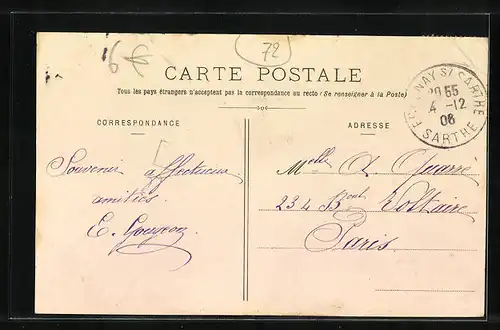 16 f
72
CARTE POSTALE
Tous les pays étrangers n'acceptent pas la correspondance au recto (Se renseigner à la Poste)
CORRESPONDANCE
Souvenir affectueux
amitiés
E. Gougeon
ADRESSE
Melle A. Quarré
234 Bout Voltaire
Paris
NAY S/ SARTHE
20 55
4 -12
06
SARTHE